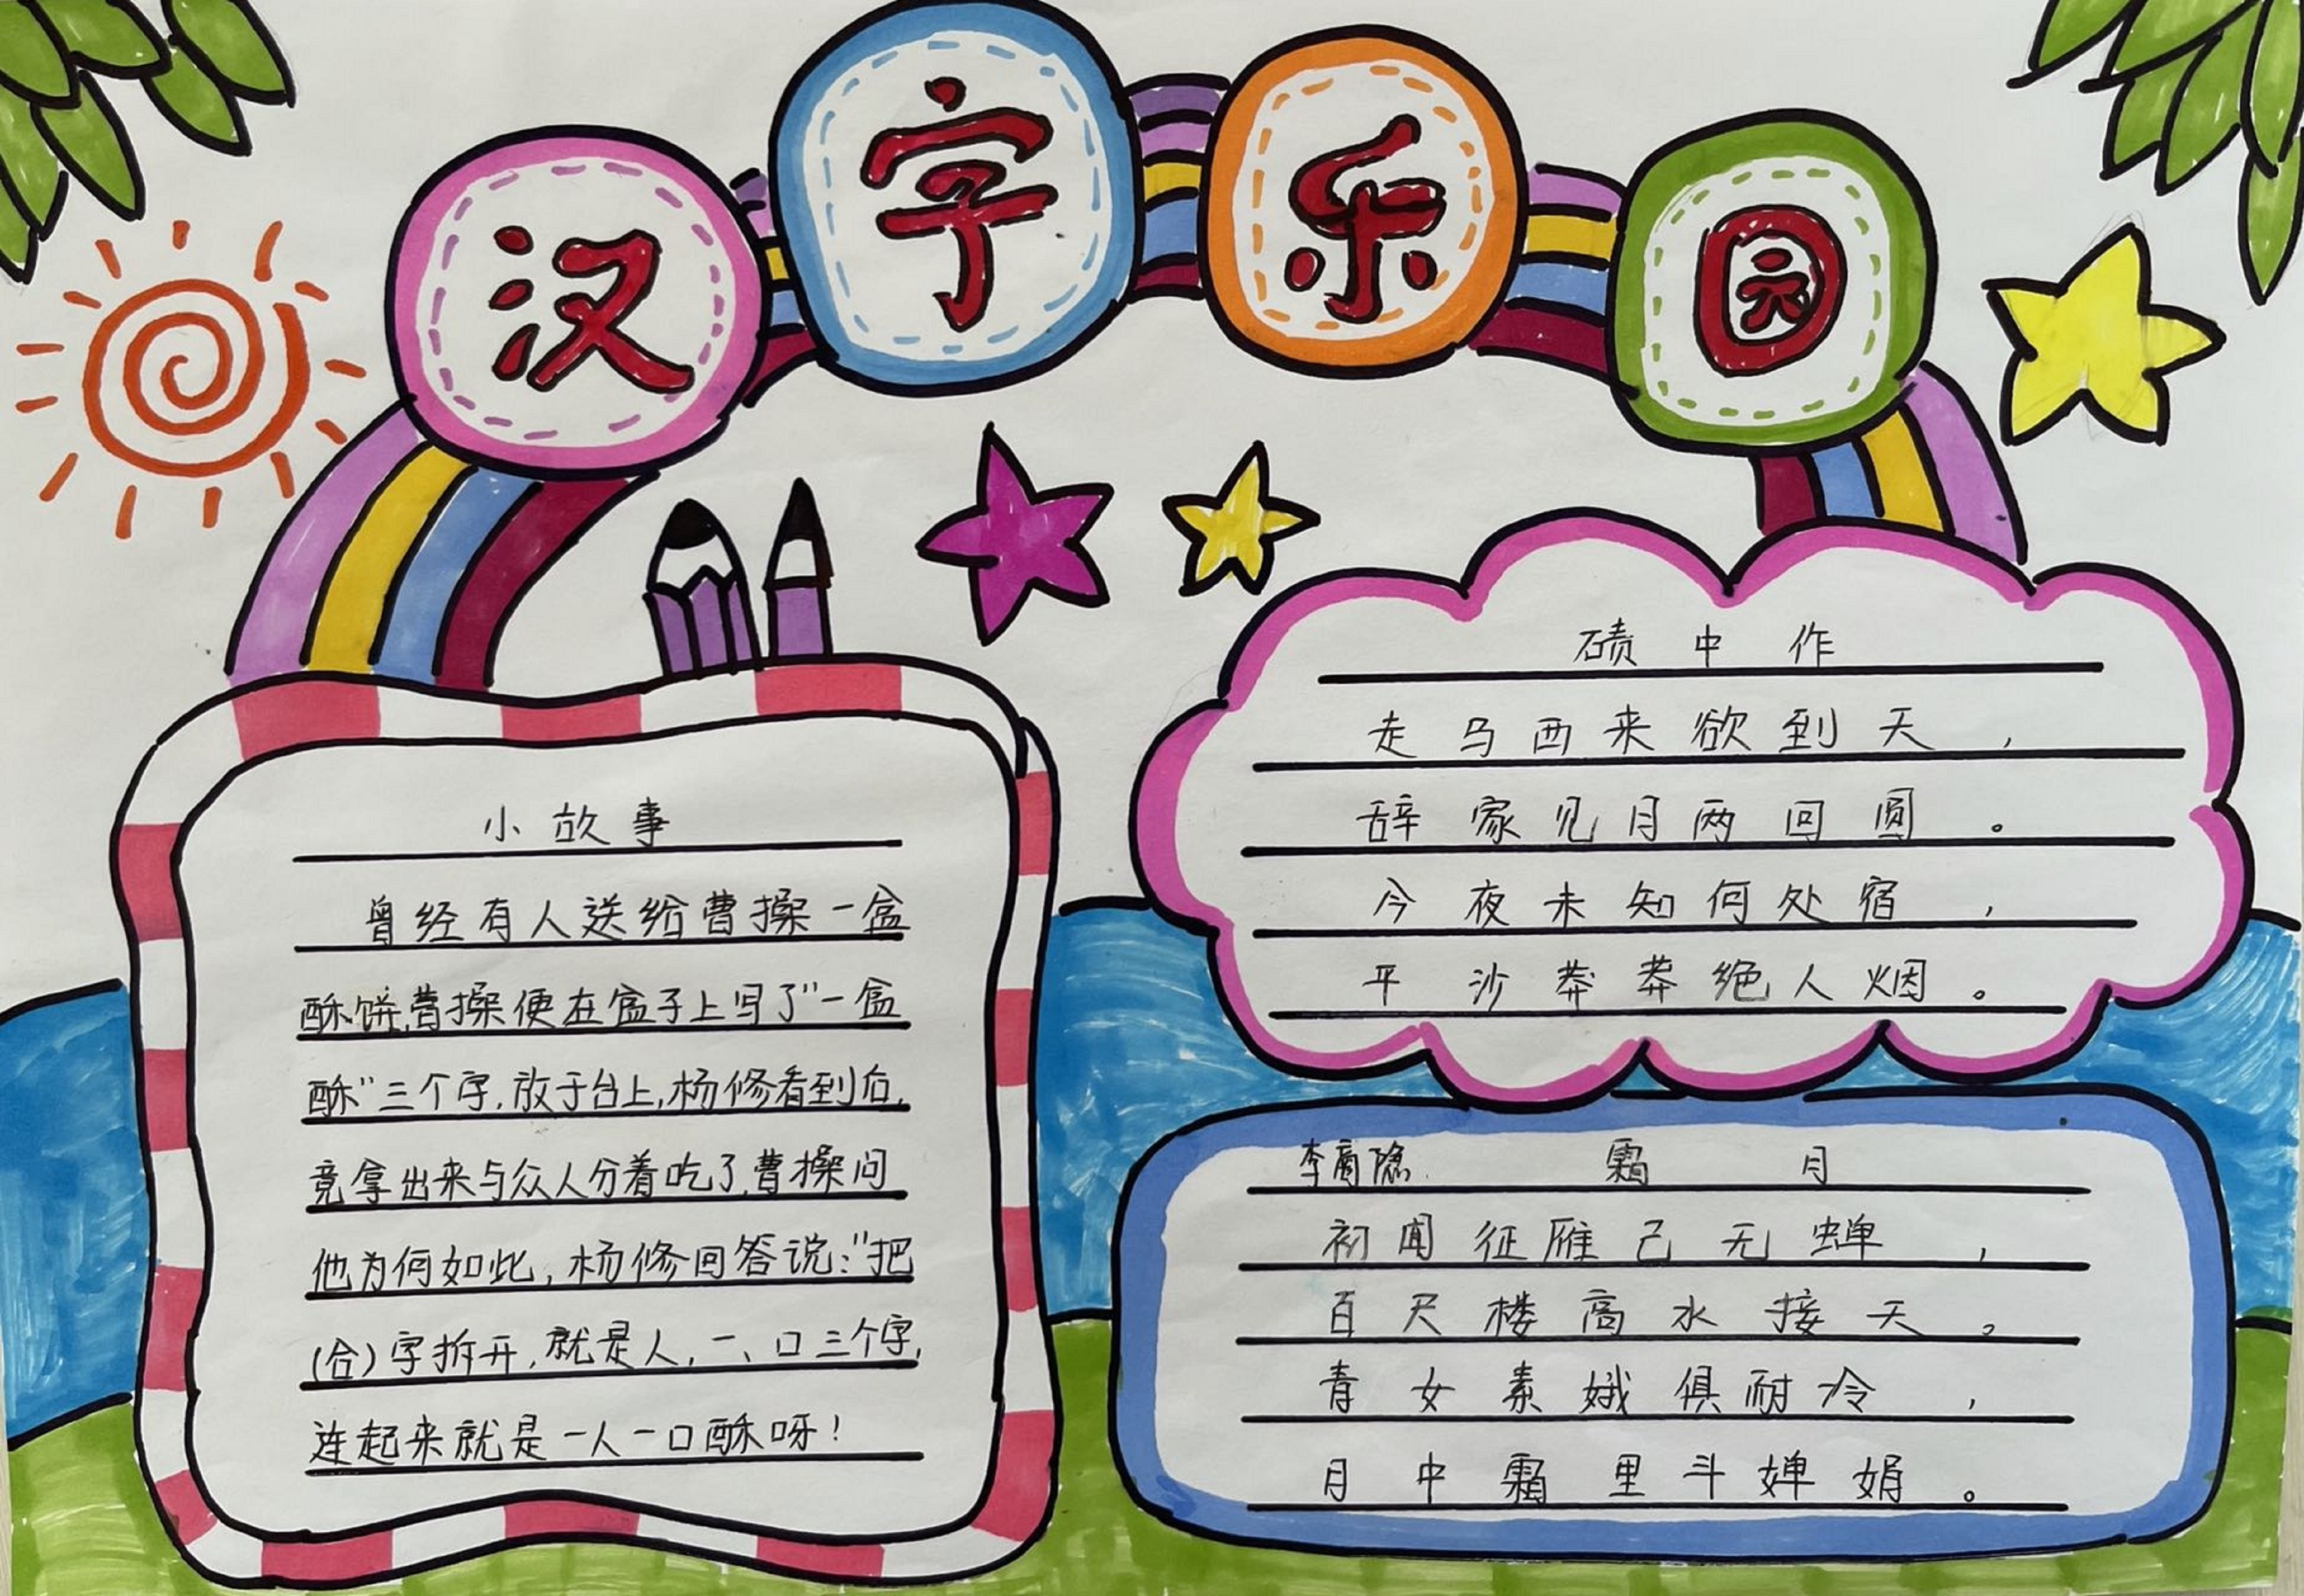 汉字乐园
小故事
曾经有人送给曹操一盒
酥饼,曹操便在盒子上写了"一盒
酥"三个字,放于台上,杨修看到后,
竟拿出来与众人分着吃了,曹操问
他为何如此,杨修回答说:"把
(合)字拆开,就是人,一、口三个字,
连起来就是一人一口酥呀!
碛中作
走马西来欲到天,
辞家见月两回圆。
今夜未知何处宿,
平沙莽莽绝人烟。
李商隐. 霜月
初闻征雁已无蝉,
百尺楼高水接天。
青女素娥俱耐冷,
月中霜里斗婵娟。